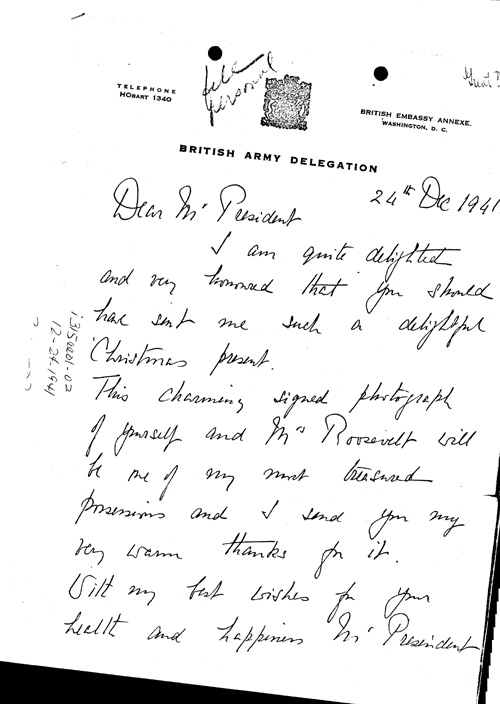 TELEPHONE
HOBART 1340
file
personal
BRITISH EMBASSY ANNEXE,
WASHINGTON, D. C.
BRITISH ARMY DELEGATION
24th Dec 1941
Dear Mr President
I am quite delighted
and very honoured that you should
have sent me such a delightful
Christmas present.
This charming signed photograph
of yourself and Mrs Roosevelt will
be one of my most treasured
possessions and I send you my
very warm thanks for it.
With my best wishes for your
health and happiness Mr President
i3150201-02
12-24-1941